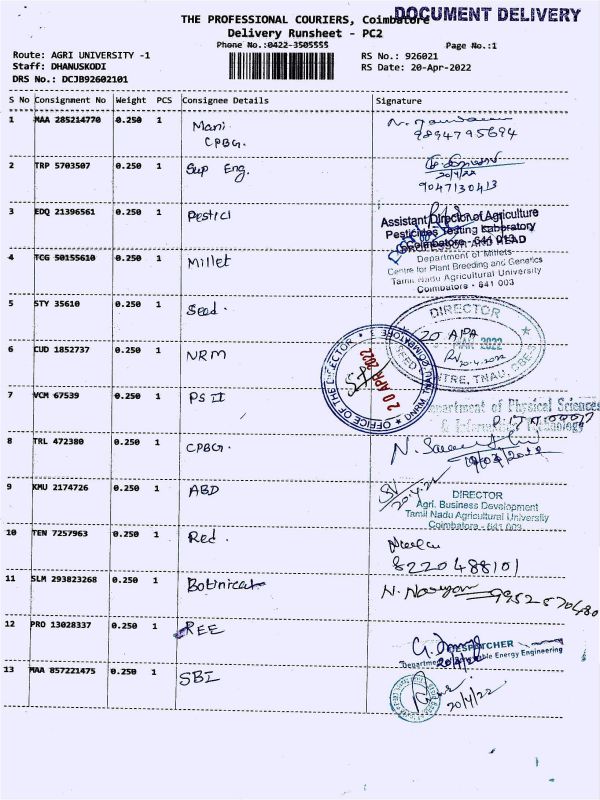 DOCUMENT DELIVERY
THE PROFESSIONAL COURIERS, Coimbatore
Delivery Runsheet - PC2
Phone No.:0422-3505555
Page No.:1
Route: AGRI UNIVERSITY -1
RS No.: 926021
Staff: DHANUSKODI
RS Date: 20-Apr-2022
DRS No.: DCJB92602101
S No Consignment No Weight PCS Consignee Details Signature
1 MAA 285214770 0.250 1 Mani
CPBG.
9894795694
2 TRP 5703507 0.250 1 Sup Eng.
20/4/22
9047130413
3 EDQ 21396561 0.250 1 Pestici
Assistant Director of Agriculture
Pesticides Testing Laboratory
Coimbatore - 641 013
PROFESSOR AND HEAD
4 TCG 50155610 0.250 1 Millet
Department of Millets
Centre for Plant Breeding and Genetics
Tamil Nadu Agricultural University
Coimbatore - 641 003
5 STY 35610 0.250 1 Seed.
DIRECTOR
20 APR 2022
20.4.2022
SEED CENTRE, TNAU, CBE-3
6 CUD 1852737 0.250 1 NRM
OFFICE OF THE DIRECTOR
20 APR 2022
DNRM, TNAU, COIMBATORE 3
7 VCM 67539 0.250 1 PS IT
Department of Physical Sciences
& Information Technology
8 TRL 472380 0.250 1 CPBG.
9 KMU 2174726 0.250 1 ABD
20.4.22
DIRECTOR
Agri. Business Development
Tamil Nadu Agricultural University
Coimbatore - 641 003
10 TEN 7257963 0.250 1 Red.
8220488101
11 SLM 293823268 0.250 1 Botinical
N.
12 PRO 13028337 0.250 1 REE
DESPATCHER
Department Renewable Energy Engineering
13 MAA 857221475 0.250 1 SBI
20/4/22